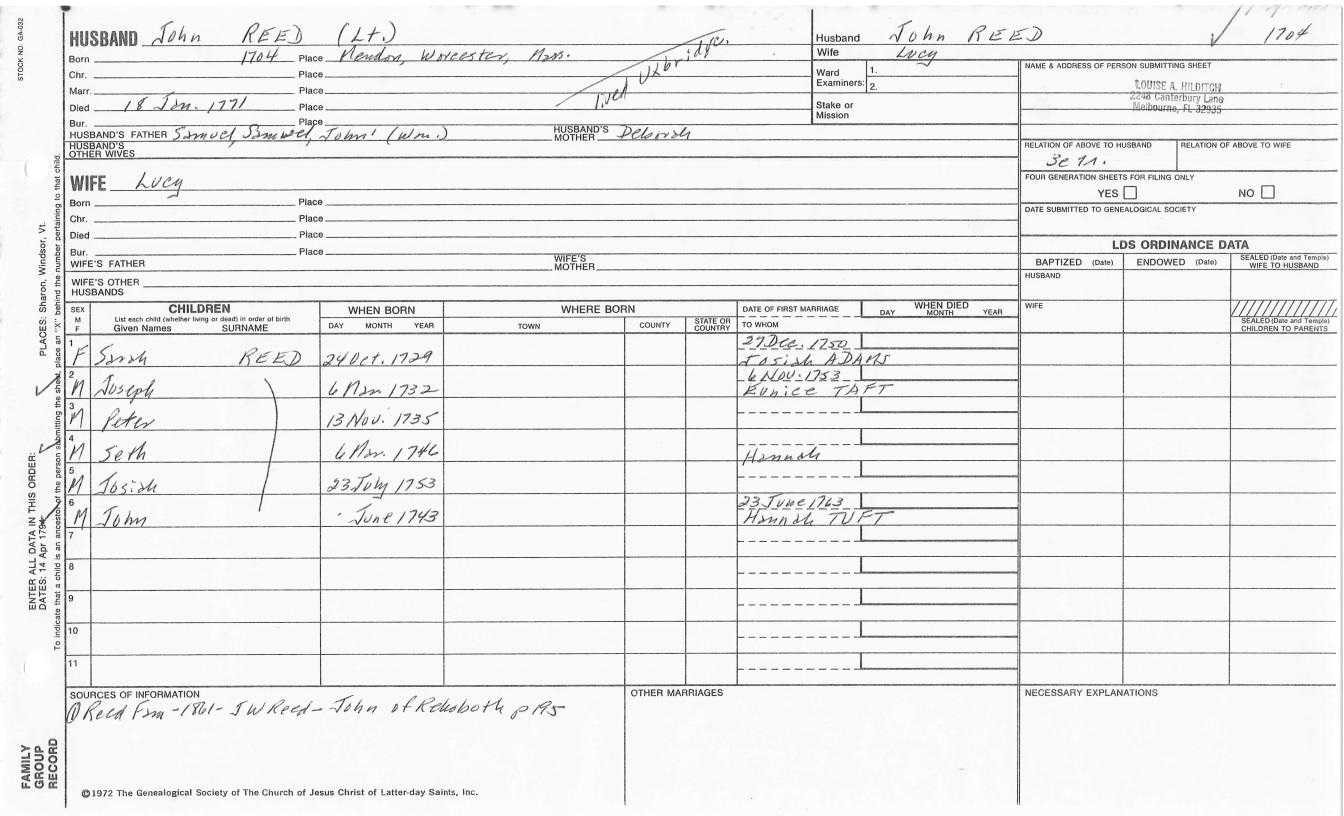 STOCK NO. GA-032
HUSBAND John REED (Lt.)
Born 1704 Place Mendon, Worcester, Mass.
Chr. Place
Marr. Place
Died 18 Jan. 1771 Place
Bur. Place
lived Uxbridge.
HUSBAND'S FATHER Samuel, Samuel, John' (Wm.) HUSBAND'S MOTHER Deborah
HUSBAND'S OTHER WIVES
Husband John REED 1704
Wife Lucy
Ward Examiners: 1.
2.
Stake or Mission
NAME & ADDRESS OF PERSON SUBMITTING SHEET
LOUISE A. HILDITCH
2248 Canterbury Lane
Melbourne, FL 32935
RELATION OF ABOVE TO HUSBAND RELATION OF ABOVE TO WIFE
FOUR GENERATION SHEETS FOR FILING ONLY
YES NO
DATE SUBMITTED TO GENEALOGICAL SOCIETY
WIFE Lucy
Born Place
Chr. Place
Died Place
Bur. Place
WIFE'S FATHER WIFE'S MOTHER
WIFE'S OTHER HUSBANDS
LDS ORDINANCE DATA
BAPTIZED (Date) ENDOWED (Date) SEALED (Date and Temple) WIFE TO HUSBAND
HUSBAND
WIFE
SEALED (Date and Temple) CHILDREN TO PARENTS
SEX M F
CHILDREN
List each child (whether living or dead) in order of birth
Given Names SURNAME
WHEN BORN
DAY MONTH YEAR
WHERE BORN
TOWN COUNTY STATE OR COUNTRY
DATE OF FIRST MARRIAGE
TO WHOM
WHEN DIED
DAY MONTH YEAR
1 F Sarah REED 24 Oct. 1729 27 Dec. 1750
Josiah ADAMS
2 M Joseph 6 Mar 1732 6 Nov. 1753
Eunice TAFT
3 M Peter 13 Nov. 1735
4 M Seth 6 Mar. 1746 Hannah
5 M Josiah 23 July 1753
6 M John June 1743 23 June 1763
Hannah TUFT
7
8
9
10
11
SOURCES OF INFORMATION
① Reed Fam - 1861 - JW Reed - John of Rehoboth p 195
OTHER MARRIAGES
NECESSARY EXPLANATIONS
©1972 The Genealogical Society of The Church of Jesus Christ of Latter-day Saints, Inc.
FAMILY GROUP RECORD
ENTER ALL DATA IN THIS ORDER:
DATES: 14 Apr 1794
PLACES: Sharon, Windsor, Vt.
To indicate that a child is an ancestor of the person submitting the sheet, place an "X" behind the number pertaining to that child.